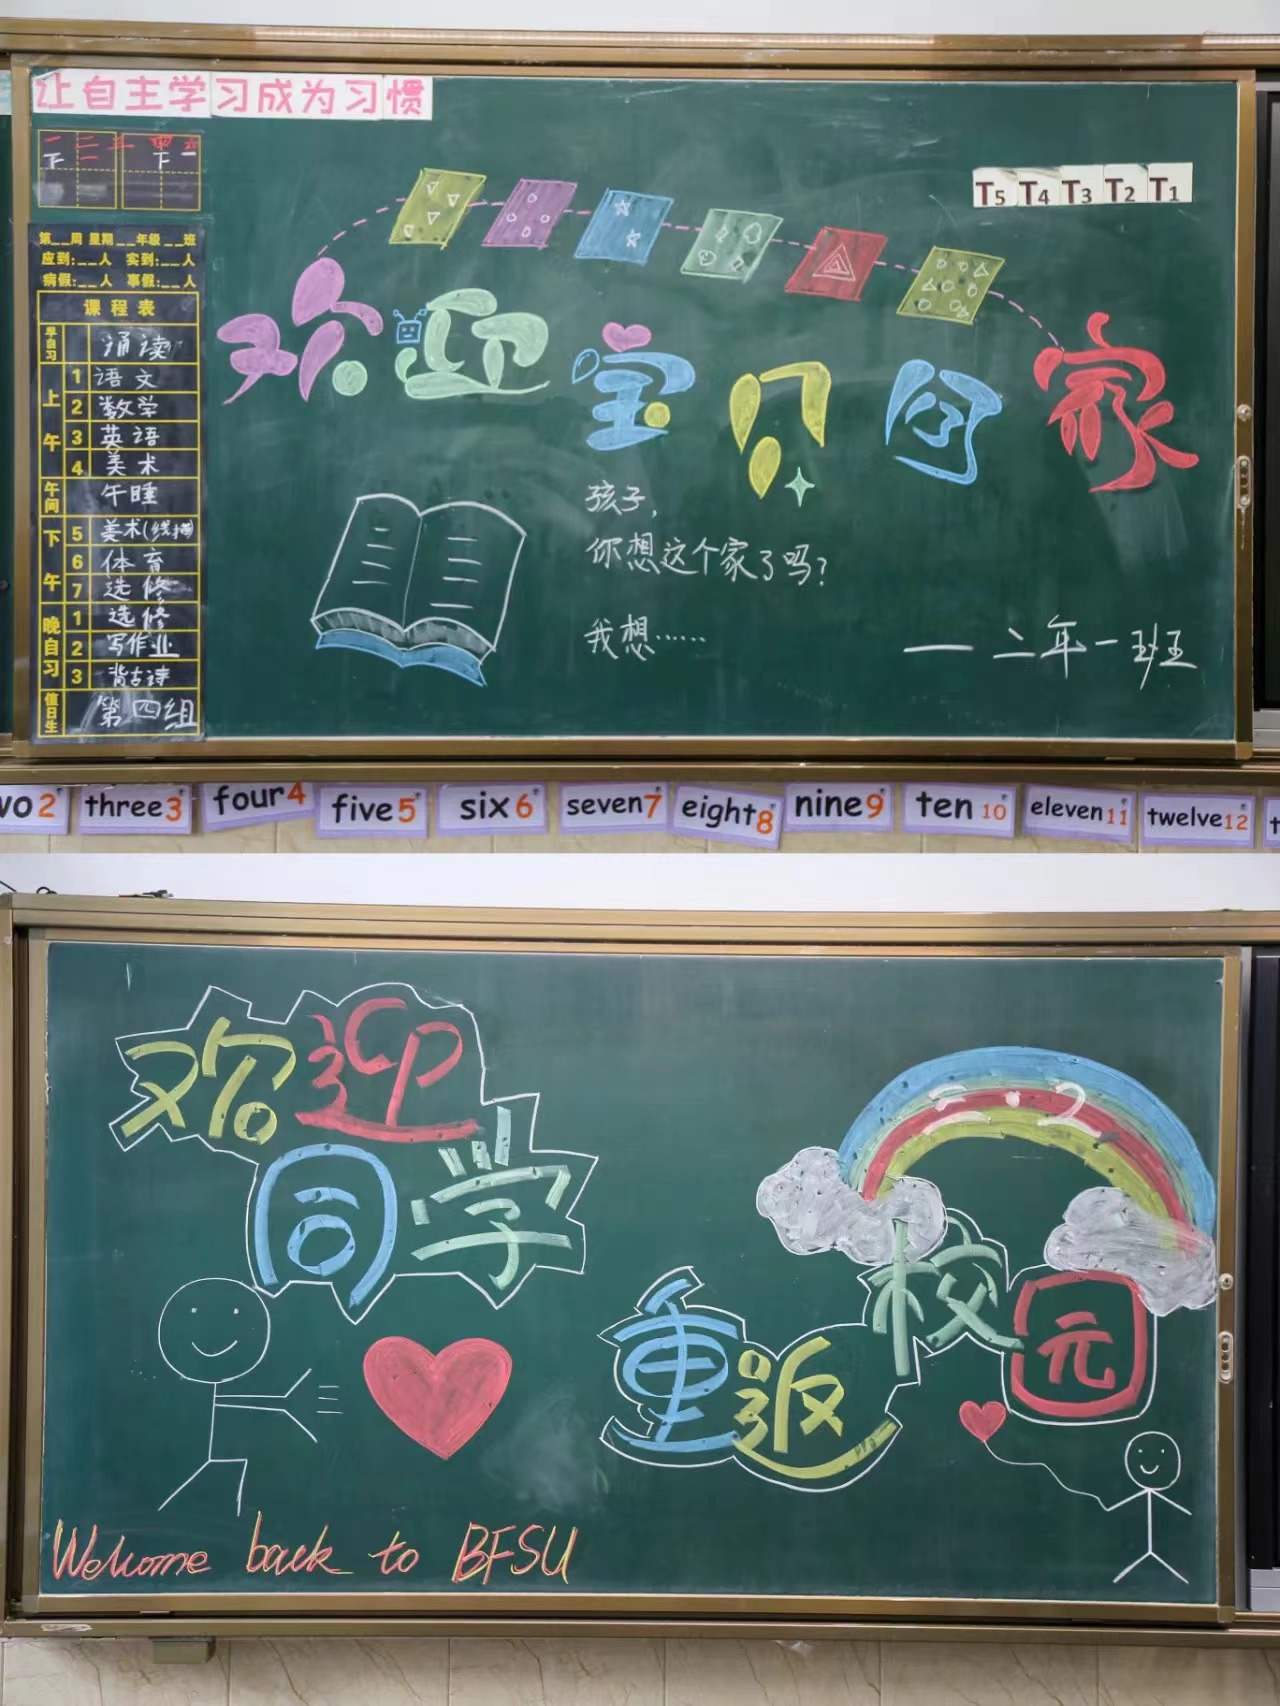 让自主学习成为习惯
一 二 三 四 六
下 一 下 一
第__周 星期__年级__班
应到:__人 实到:__人
病假:__人 事假:__人
课程表
早自习 诵读
上午 1 语文
2 数学
3 英语
4 美术
午间 午睡
下午 5 美术(线描)
6 体育
7 选修
晚自习 1 选修
2 写作业
3 背古诗
值日生 第四组
T5 T4 T3 T2 T1
欢迎宝贝回家
孩子,
你想这个家了吗?
我想……
— 二年一班
wo 2 three 3 four 4 five 5 six 6 seven 7 eight 8 nine 9 ten 10 eleven 11 twelve 12 t
欢迎
同学
重返校园
二·2
Welcome back to BFSU